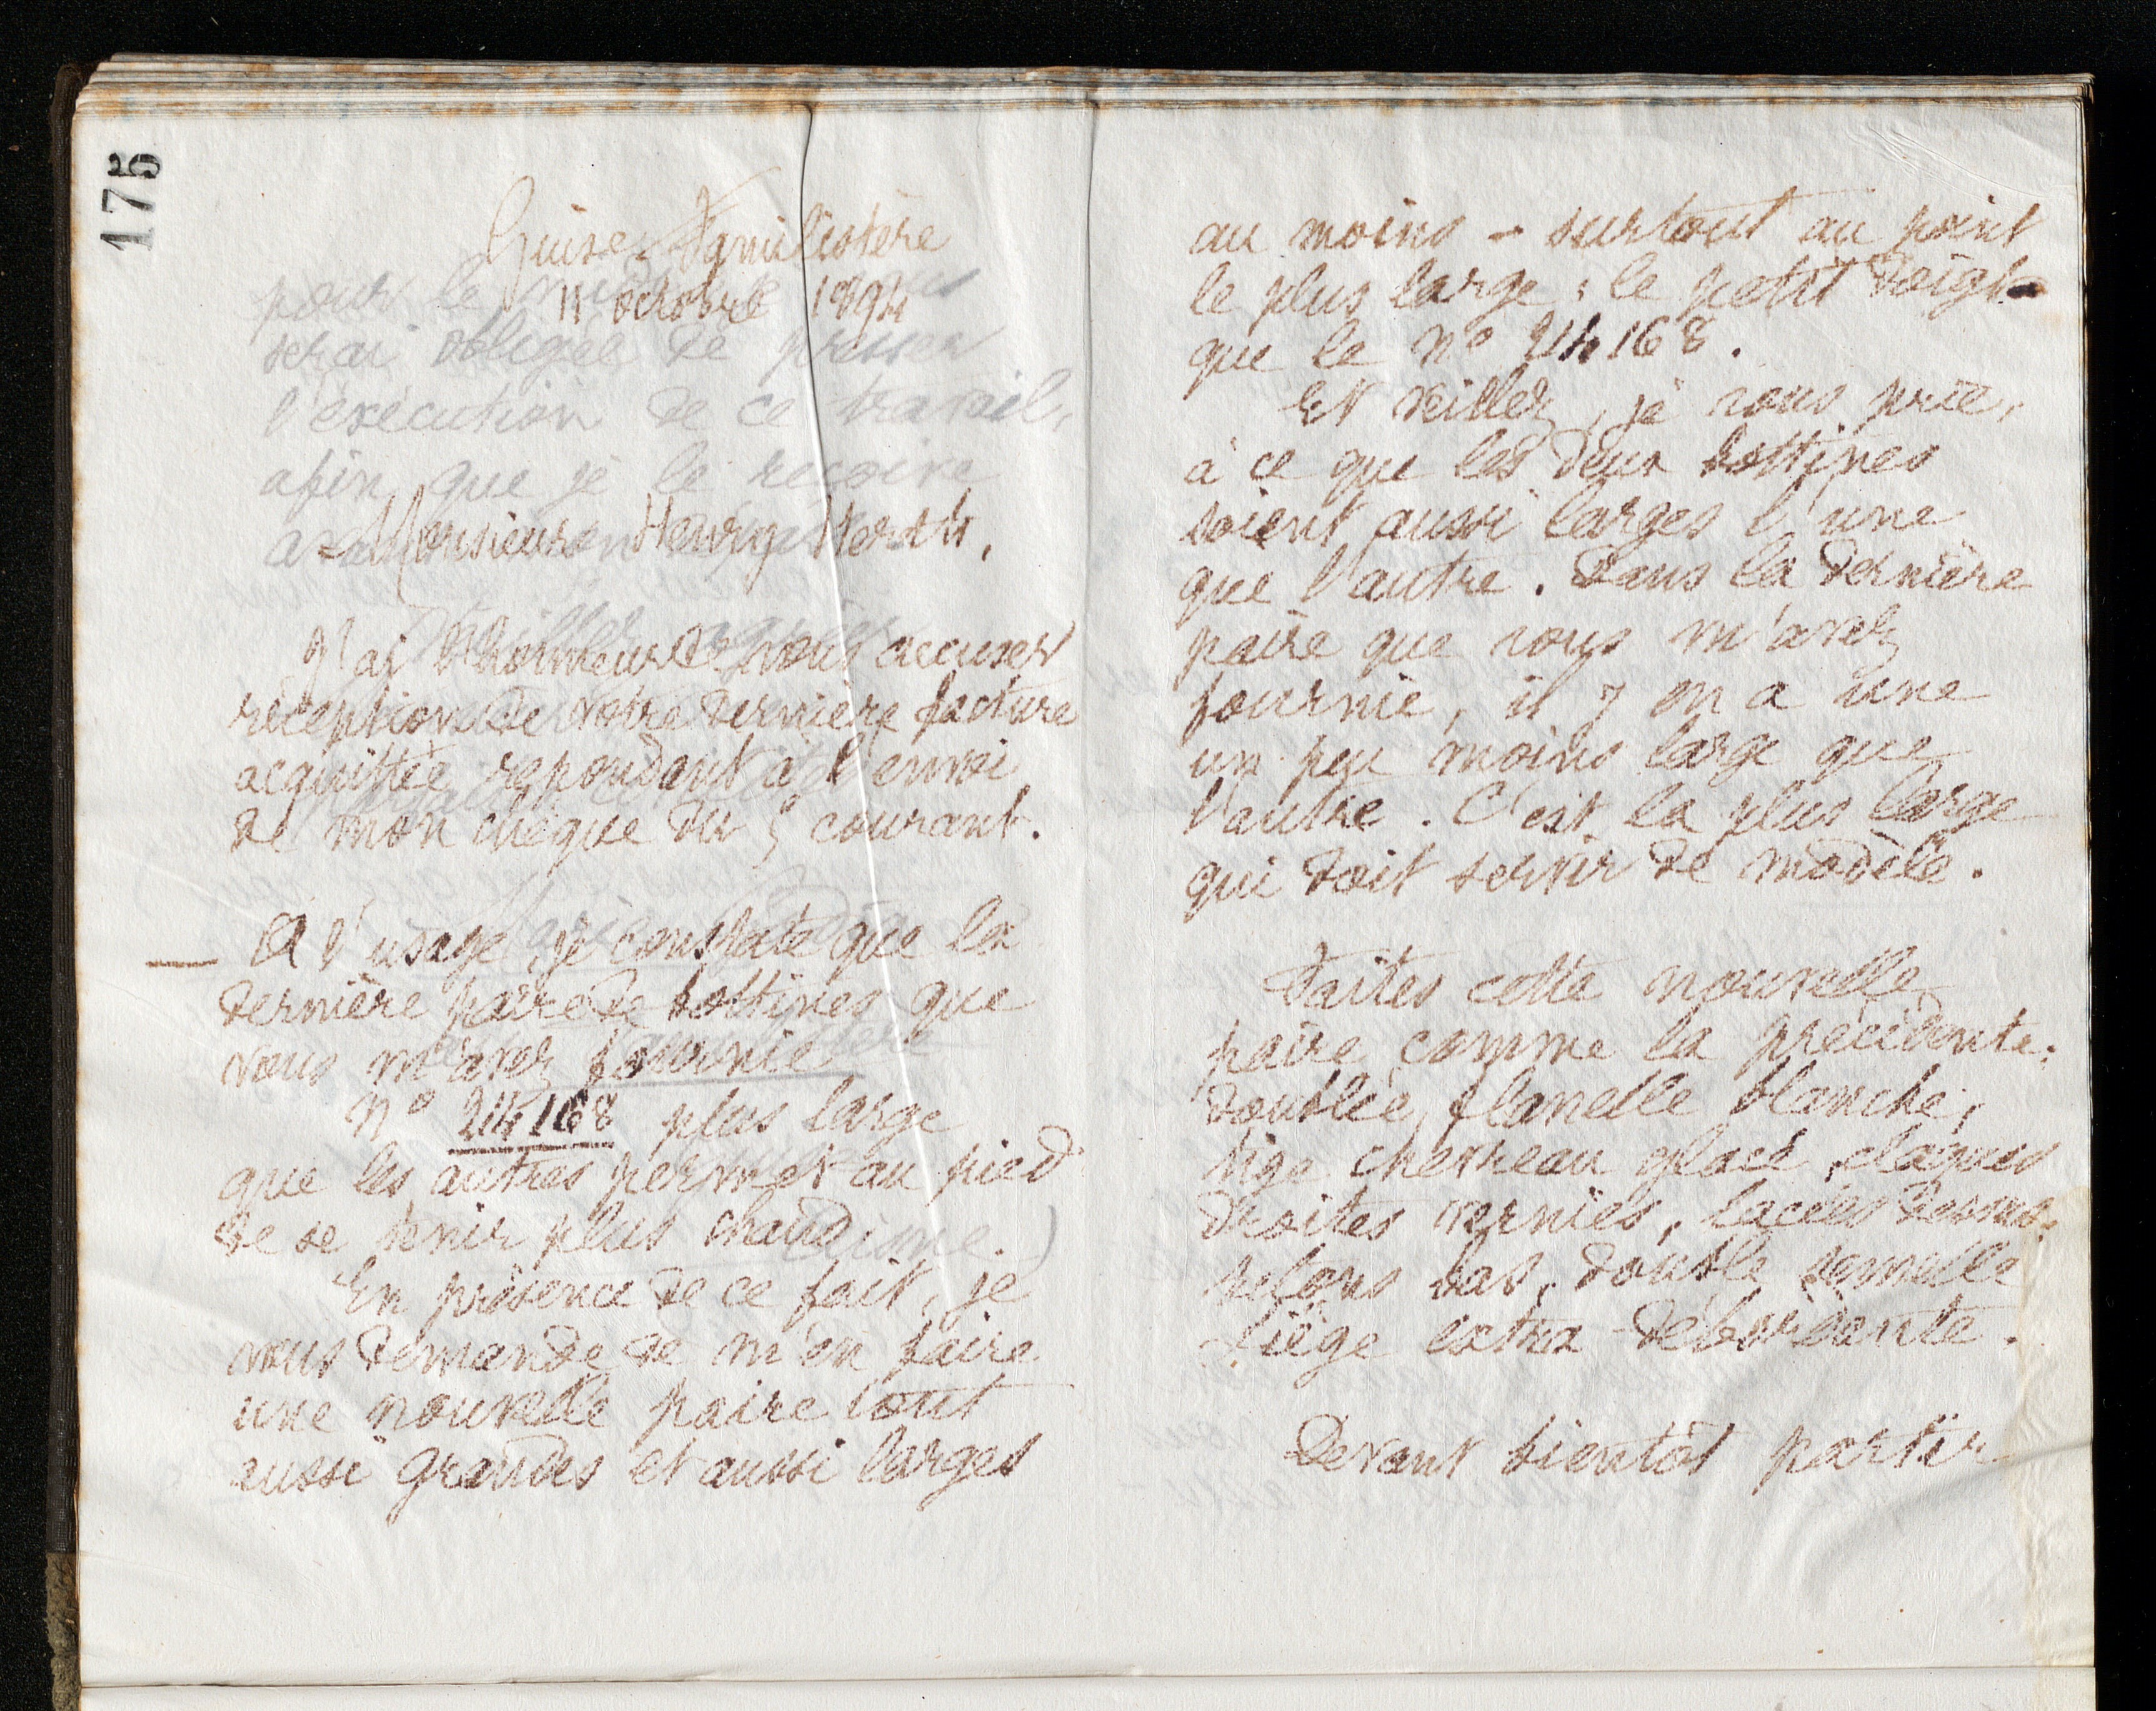 175
Guise. Familistère
11 octobre 1894
Monsieur Henry
J'ai l'honneur de vous accuser
réception de votre dernière facture
acquittée répondant à l'envoi
de mon chèque du 5 courant.
— A l'usage, je constate que la
dernière paire de bottines que
vous m'avez fournie
n° 24168 plus large
que les autres permet au pied
de se tenir plus chaud
En présence de ce fait, je
vous demande de m'en faire
une nouvelle paire tout
aussi grandes et aussi larges
au moins - surtout au point
le plus large : le petit doigt -
que le n° 24168.
Et veillez, je vous prie,
à ce que les deux bottines
soient aussi larges l'une
que l'autre. Dans la dernière
paire que vous m'avez
fournie, il y en a une
un peu moins large que
l'autre. C'est la plus large
qui doit servir de modèle.
Faites cette nouvelle
paire comme la précédente:
doublée flanelle blanche,
tige chevreau glacé, claques
droites vernies, lacées
talons bas, double semelle
liège extra-débordante.
Devant bientôt partir
pour le midi
serai obligée de presser
l'exécution de ce travail,
afin que je le reçoive